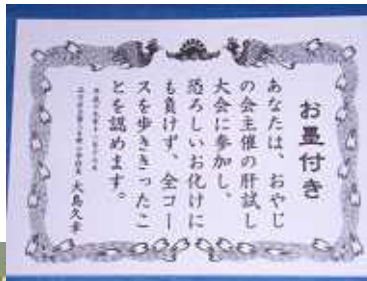 お墨付き
あなたは、おやじ
の会主催の肝試し
大会に参加し、
恐ろしいお化けに
も負けず、全コー
スを歩ききったこ
とを認めます。
大島久幸